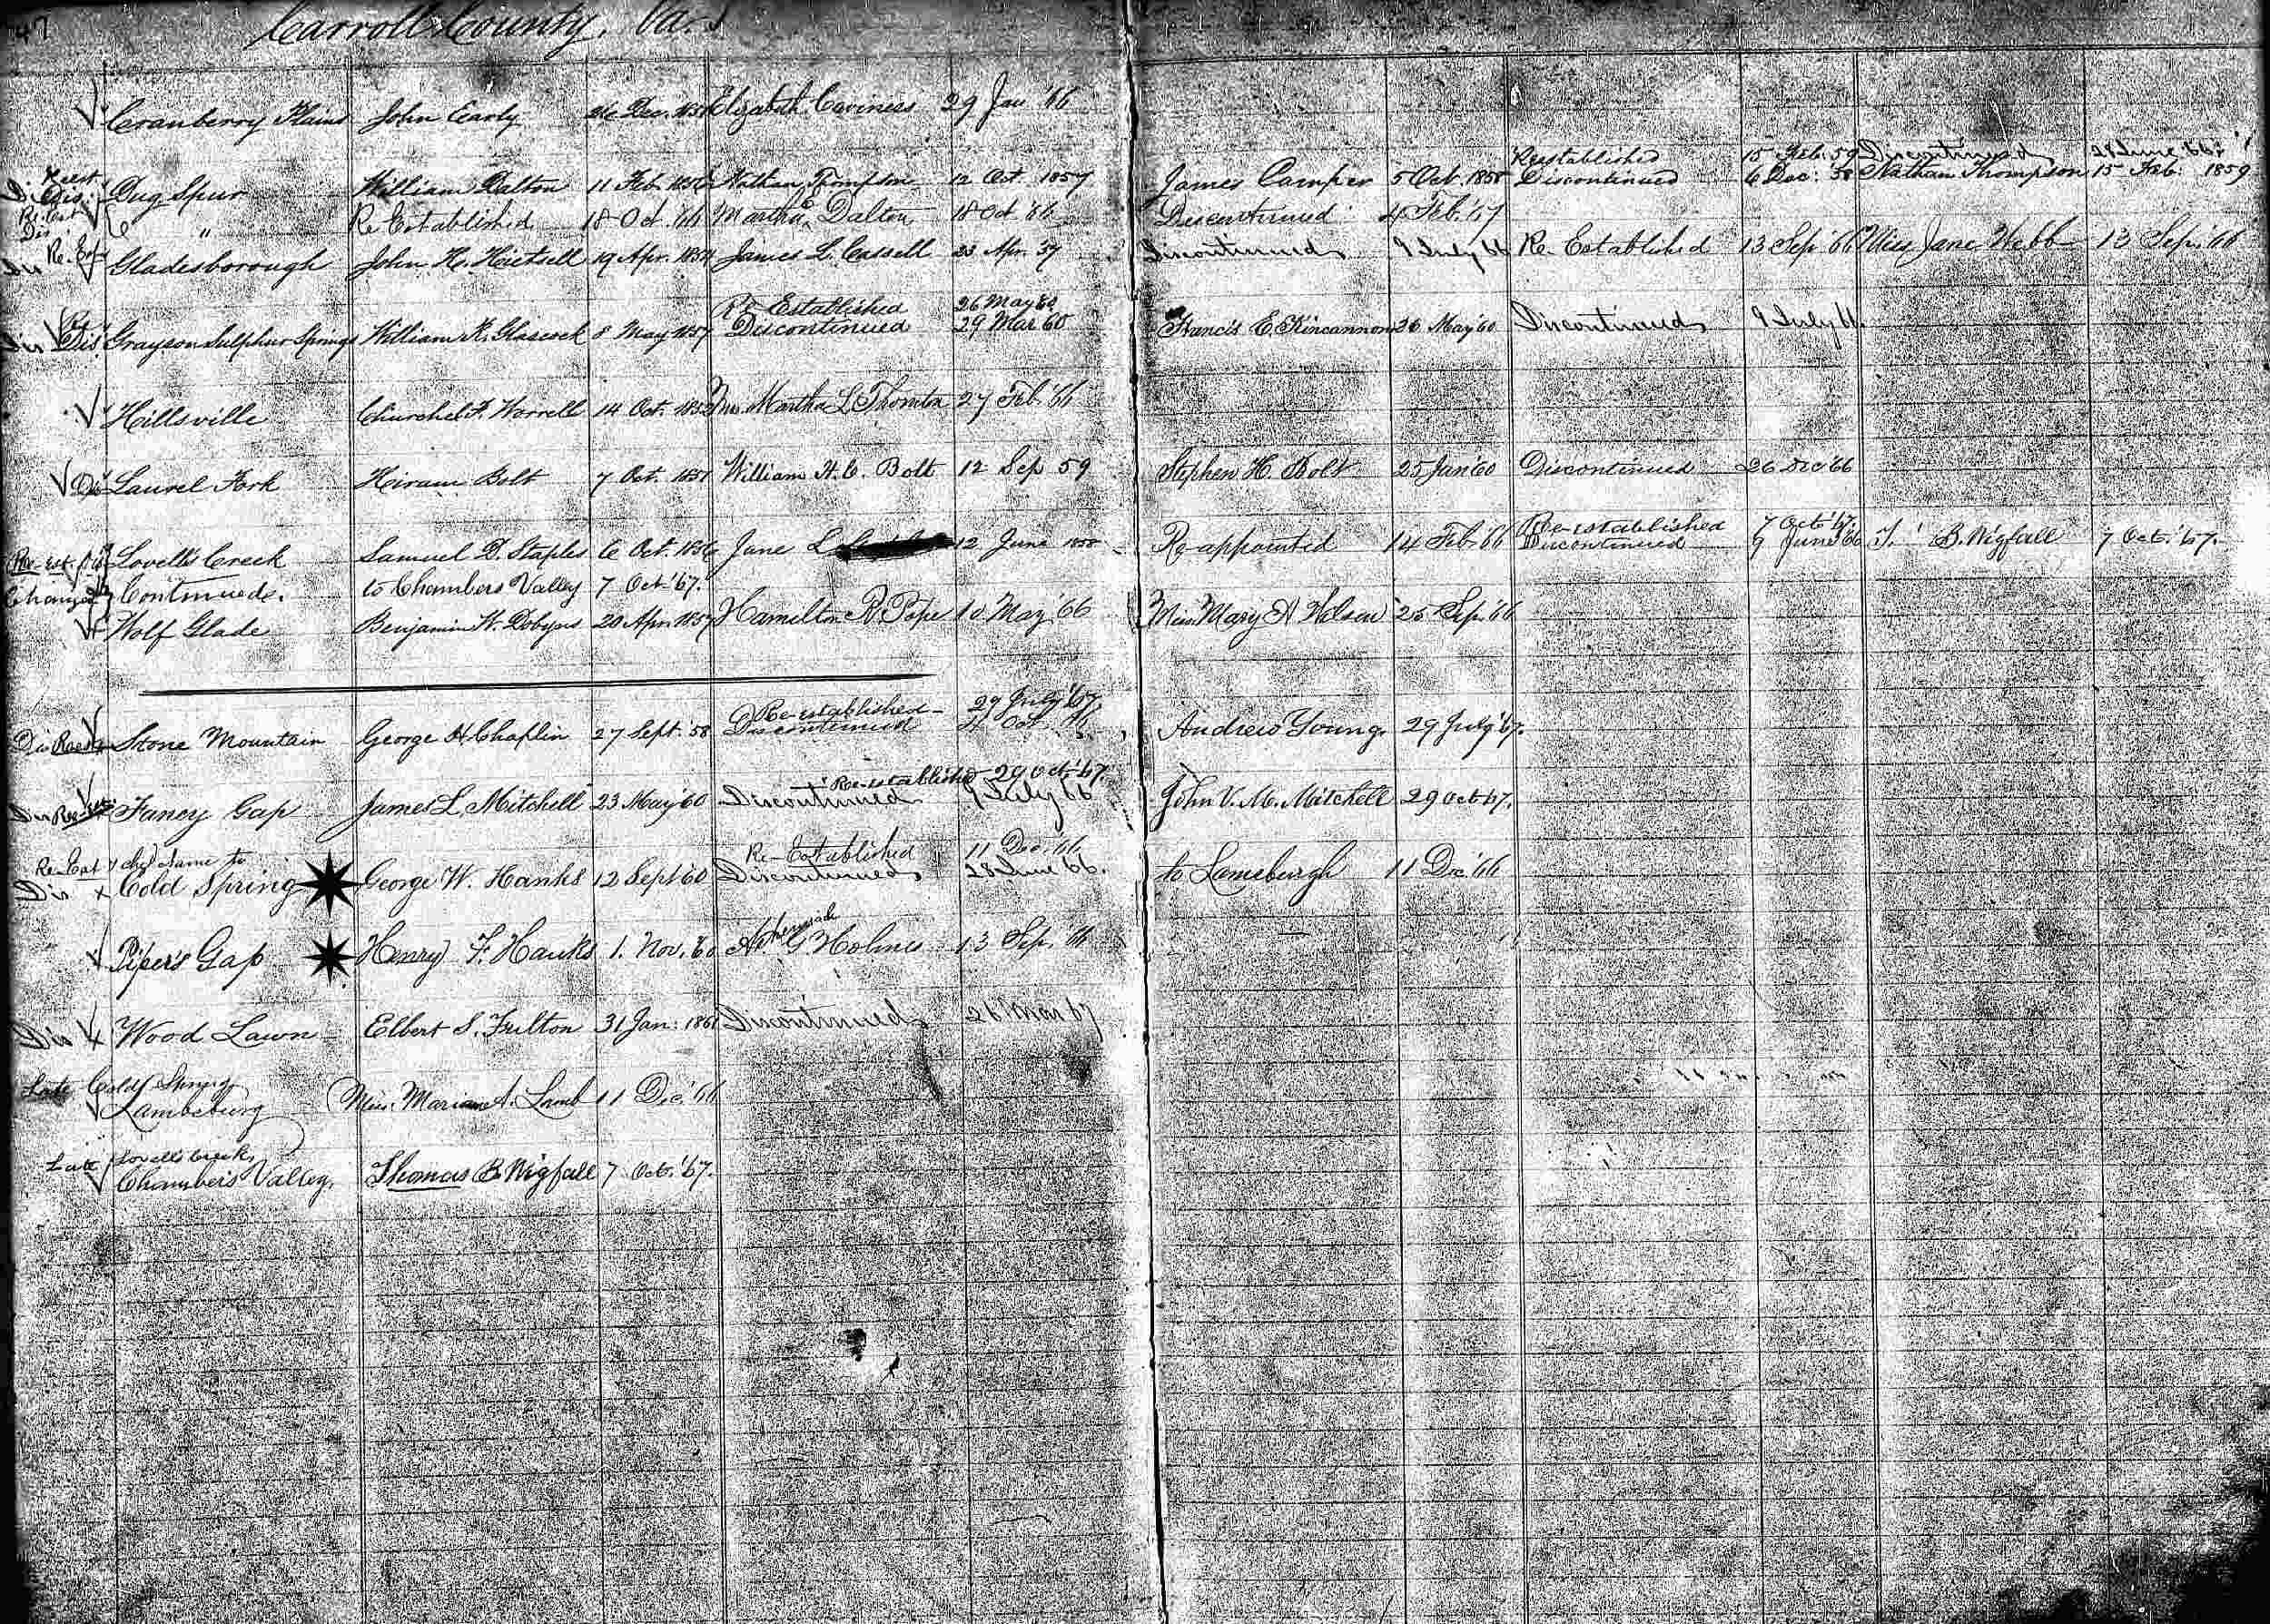 47
Carroll County, Va.
Cranberry Plains John Early 26 Dec. Elizabeth Caviness 29 Jan '66
Reestablished 15 Feb. 59 Discontinued 28 June '66
Dis. Dug Spur William Dalton 11 Feb. 1856 Nathan Thompson 12 Oct. 1857 James Camper 5 Oct. 1858 Discontinued 6 Dec: 58 Nathan Thompson 15 Feb: 1859
Re. Est Dis " Re Established 18 Oct. '66 Martha Dalton 18 Oct '66 Discontinued 4 Feb. '67
Dis Re. Est Gladesborough John H. 19 Apr. James L. Cassell 23 Apr. 57 Discontinued 9 July 66 Re. Established 13 Sep '66 Miss Jane Webb 13 Sep. '66
Re Established 26 May 60
Dis Dis Grayson Sulphur Springs William N. Glascock 8 May 1857 Discontinued 29 Mar 60 Francis E. Kincannon 26 May '60 Discontinued 9 July 66
Hillsville Churchel F. Worrell 14 Oct. Mrs Martha L Thornton 27 Feb. '66
Dis Laurel Fork Hiram Bolt 7 Oct. 1851 William H. C. Bolt 12 Sep 59 Stephen H. Bolt 25 Jan '60 Discontinued 26 Dec '66
Re-established 7 Oct. '67.
Re-est. Dis Lovell's Creek Samuel D. Staples 6 Oct. 1856 Jane L 12 June 1858 Re-appointed 14 Feb. 66 Discontinued 9 June 66 T. B. Wigfall 7 Oct. '67.
Changed Continued. to Chambers Valley 7 Oct. '67.
Wolf Glade Benjamin W. Dobyns 20 Apr. 1857 Hamilton R. Pope 10 May '66 Miss Mary A Wilson 25 Sep. '66
Re-established 29 July '67.
Dis Reest Stone Mountain George H Chaplin 27 Sept. 58 Discontinued 4 Oct. Andrew Young. 29 July '67.
Re-established 29 Oct. '67.
Dis Re-est Fancy Gap James L. Mitchell 23 May '60 Discontinued 9 July 66 John V. M. Mitchell 29 Oct '67.
Re-Est & chg name to Re-Established 11 Dec. '66
Dis. Cold Spring George W. Hanks 12 Sept '60 Discontinued 28 June '66. to Lamsburgh 11 Dec. '66
Piper's Gap Henry F. Hanks 1. Nov. '60 G. Holmes 13 Sep. '66
Dis Wood Lawn Elbert S. Fulton 31 Jan: 1861 Discontinued 26 Mar 67
Late Cold Spring
Lambsburg Miss. Mariam A. Lamb 11 Dec. '66
Late Lovells Creek,
Chambers Valley, Thomas B. Wigfall 7 Oct. '67.